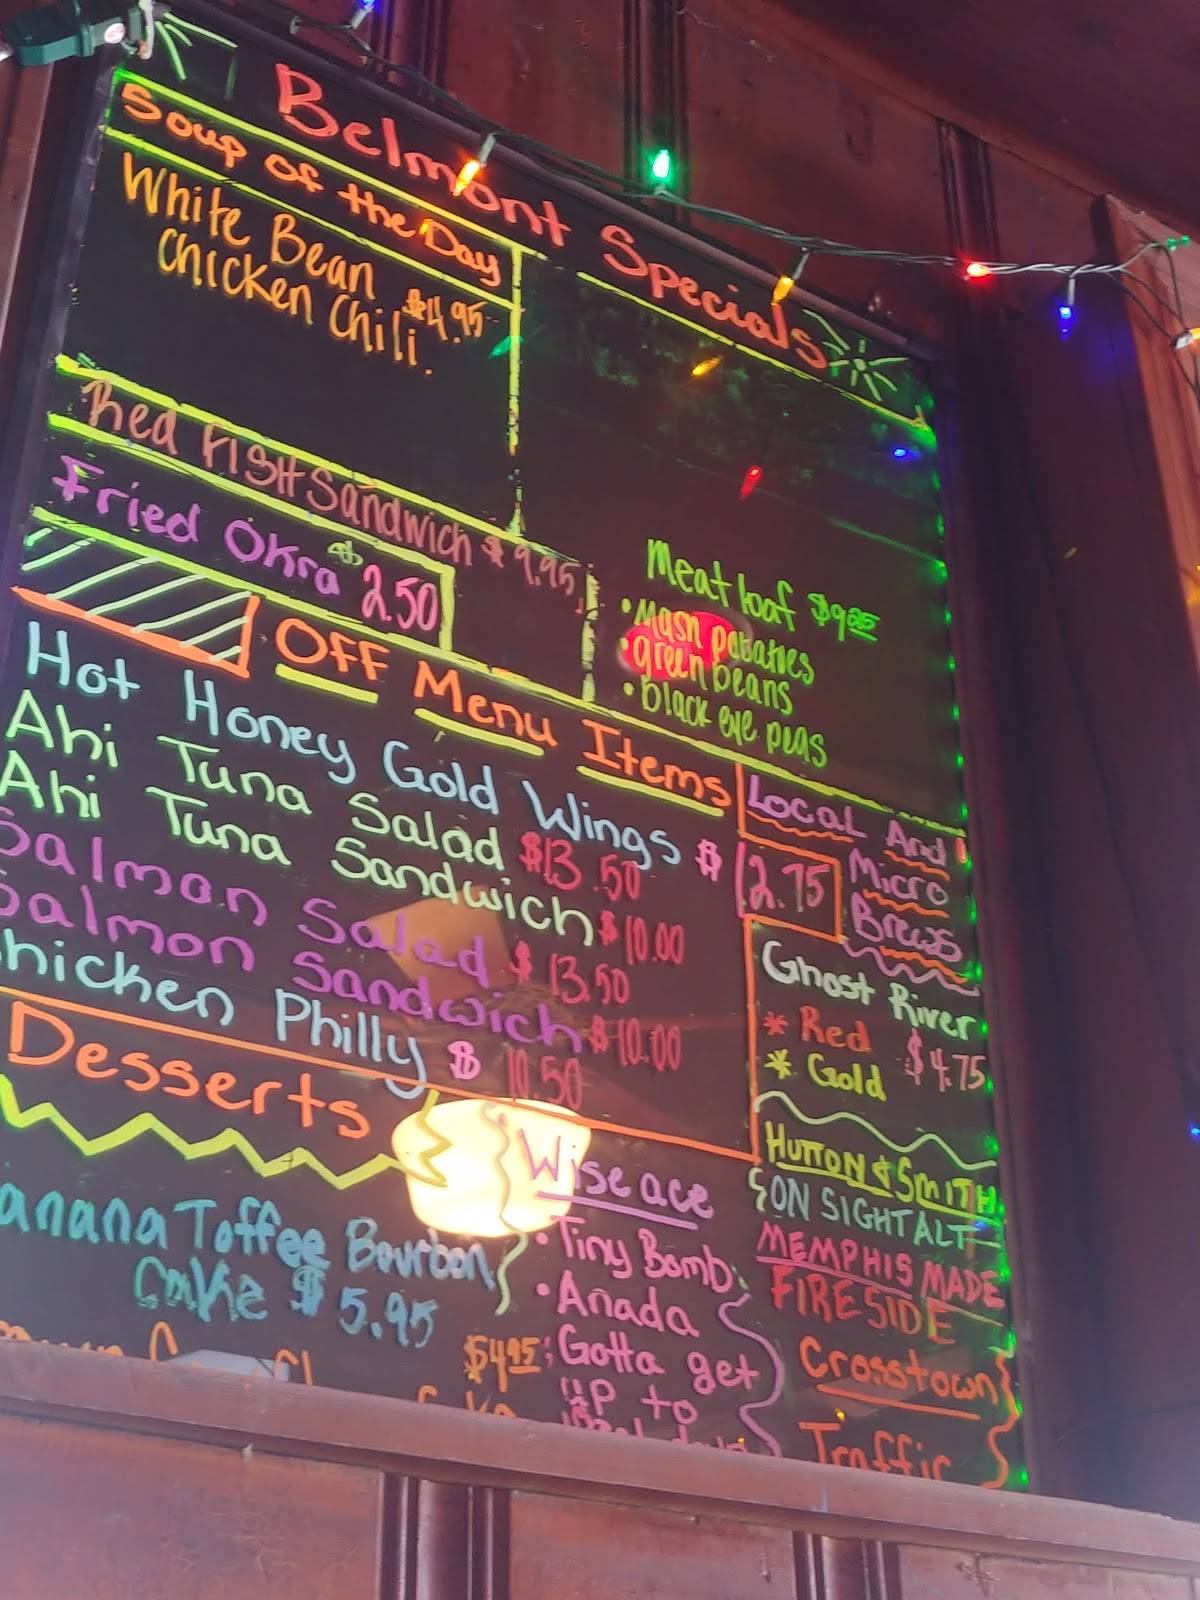 Belmont Specials
Soup of the Day
White Bean
Chicken Chili. $4.95
Red FISH Sandwich $9.95
Fried Okra $2.50
Meatloaf $9.95
• Mash potatoes
• green beans
• black eye peas
OFF Menu Items
Hot Honey Gold Wings $12.75
Ahi Tuna Salad $13.50
Ahi Tuna Sandwich $10.00
Salmon Salad $13.50
Salmon Sandwich $10.00
Chicken Philly $10.50
Local And
Micro
Brews
Ghost River
* Red $4.75
* Gold
HUTTON & SMITH
ON SIGHT ALT
MEMPHIS MADE
FIRESIDE
Crosstown
Traffic
Desserts
anana Toffee Bourbon
Cake $5.95
$4.95
Wiseace
• Tiny Bomb
• Añada
• Gotta get
up to